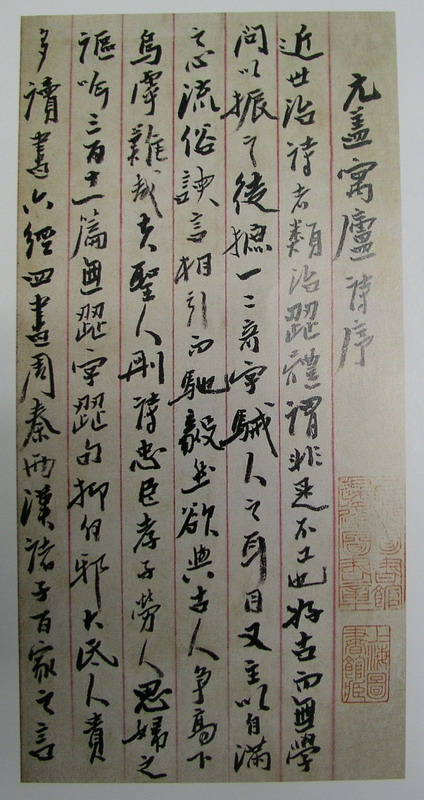 元盖寓廬詩序
近世治詩者類治澀體謂非是不工也好古而無學
問以振之徒摭一二奇字駴人之耳目又主以自滿
之心流俗諛言相引而馳毅然欲與古人爭高下
烏虖難哉夫聖人刪詩忠臣孝子勞人思婦之
謳吟三百十一篇無澀字澀句抑何邪大氐人貴
多讀書六經四書周秦兩漢諸子百家之言
上海圖書館藏